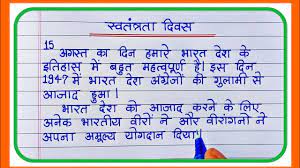 स्वतंत्रता दिवस
15 अगस्त का दिन हमारे भारत देश के
इतिहास में बहुत महत्वपूर्ण है। इस दिन
1947 में भारत देश अंग्रेजों की गुलामी से
आजाद हुआ।
भारत देश को आजाद करने के लिए
अनेक भारतीय वीरों ने और वीरांगनों ने
अपना अमूल्य योगदान दिया।